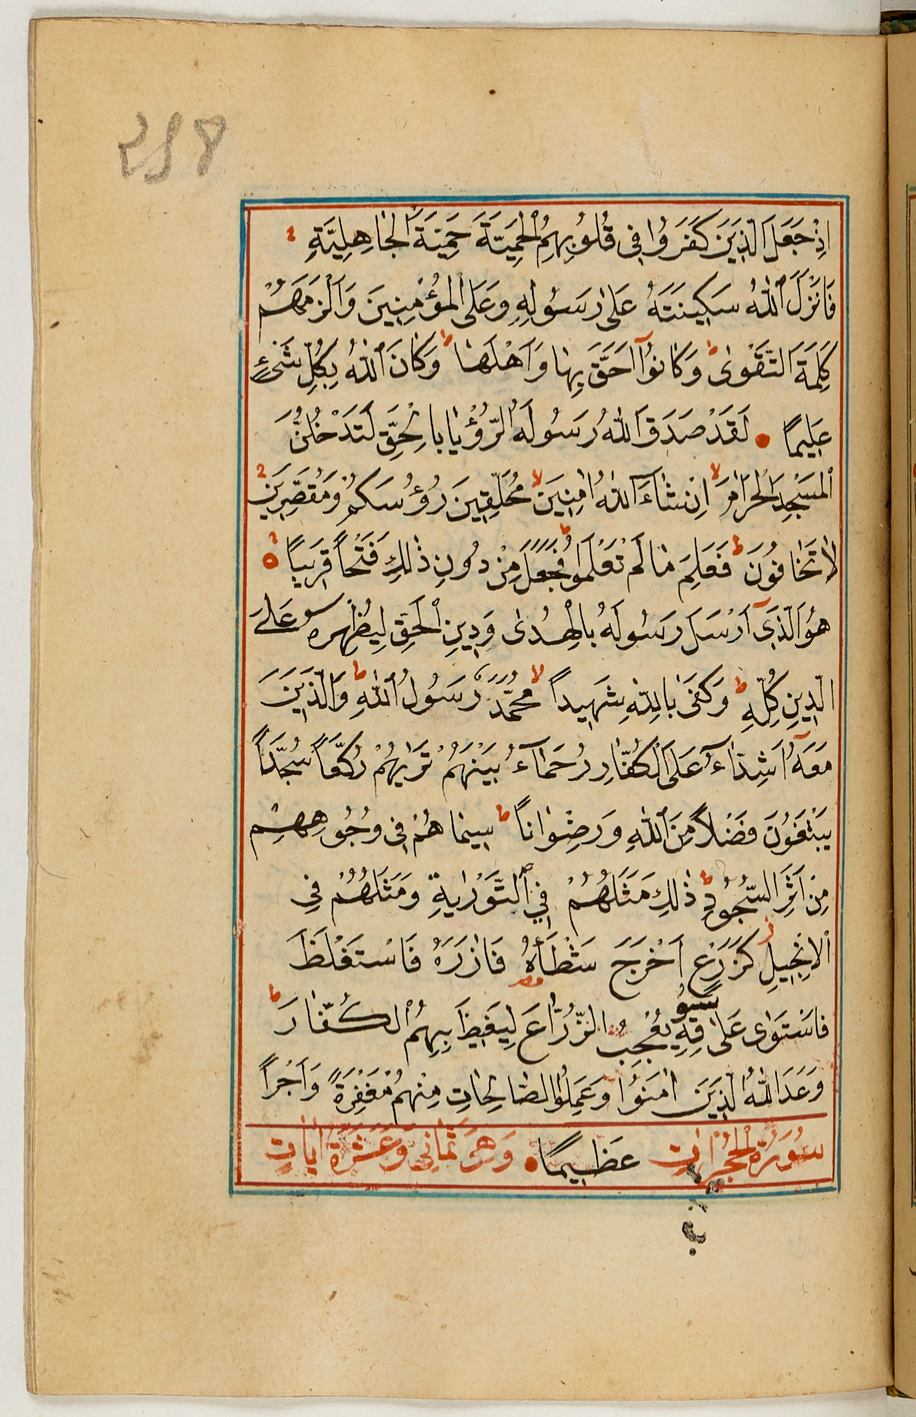 298
اِذْ جَعَلَ الَّذِينَ كَفَرُوا فِى قُلُوبِهِمُ الْحَمِيَّةَ حَمِيَّةَ الْجَاهِلِيَّةِ
فَاَنْزَلَ اللّٰهُ سَكِينَتَهُ عَلٰى رَسُولِهِ وَعَلَى الْمُؤْمِنِينَ وَاَلْزَمَهُمْ
كَلِمَةَ التَّقْوٰى ط وَكَانُوٓا اَحَقَّ بِهَا وَاَهْلَهَا ط وَكَانَ اللّٰهُ بِكُلِّ شَىْءٍ
عَلِيمًا لَقَدْ صَدَقَ اللّٰهُ رَسُولَهُ الرُّؤْيَا بِالْحَقِّ لَتَدْخُلُنَّ
الْمَسْجِدَ الْحَرَامَ لا اِنْ شَآءَ اللّٰهُ اٰمِنِينَ لا مُحَلِّقِينَ رُؤُسَكُمْ وَمُقَصِّرِينَ
لَا تَخَافُونَ ط فَعَلِمَ مَا لَمْ تَعْلَمُوا فَجَعَلَ مِنْ دُونِ ذٰلِكَ فَتْحًا قَرِيبًا
هُوَ الَّذِىٓ اَرْسَلَ رَسُولَهُ بِالْهُدٰى وَدِينِ الْحَقِّ لِيُظْهِرَهُ عَلَى
الدِّينِ كُلِّهِ ط وَكَفٰى بِاللّٰهِ شَهِيدًا لا مُحَمَّدٌ رَسُولُ اللّٰهِ ط وَالَّذِينَ
مَعَهُٓ اَشِدَّآءُ عَلَى الْكُفَّارِ رُحَمَآءُ بَيْنَهُمْ تَرٰيهُمْ رُكَّعًا سُجَّدًا
يَبْتَغُونَ فَضْلًا مِنَ اللّٰهِ وَرِضْوَانًا ط سِيمَاهُمْ فِى وُجُوهِهِمْ
مِنْ اَثَرِ السُّجُودِ ط ذٰلِكَ مَثَلُهُمْ فِى التَّوْرٰيةِ وَمَثَلُهُمْ فِى
الْاِنْجِيلِ كَزَرْعٍ اَخْرَجَ شَطْاَهُ فَاٰزَرَهُ فَاسْتَغْلَظَ
فَاسْتَوٰى عَلٰى سُوقِهِ يُعْجِبُ الزُّرَّاعَ لِيَغِيظَ بِهِمُ الْكُفَّارَ ط
وَعَدَ اللّٰهُ الَّذِينَ اٰمَنُوا وَعَمِلُوا الصَّالِحَاتِ مِنْهُمْ مَغْفِرَةً وَاَجْرًا
سُورَةُ الْحُجُرَاتِ عَظِيمًا وَهِىَ ثَمَانِى وَعَشَرَةُ اٰيَاتٍ